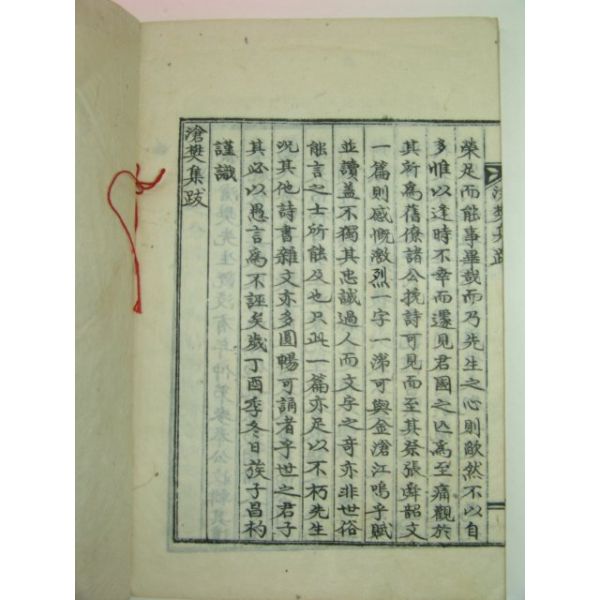 滄樊集跋
榮足而能事畢哉而乃先生之心則歐然不以自
多惟以逢時不幸而遽見君國之亾爲至痛觀於
其所爲舊僚諸公挽詩可見而至其祭張韋韶文
一篇則感慨激烈一字一涕可與金滄江嗚乎賦
並讀盖不獨其忠誠過人而文字之奇亦非世俗
能言之士所能及也只此一篇亦足以不朽先生
况其他詩書雜文亦多圓暢可誦者乎世之君子
其必以愚言爲不誣矣歲丁酉季冬日族子昌杓
謹識
滄樊集跋